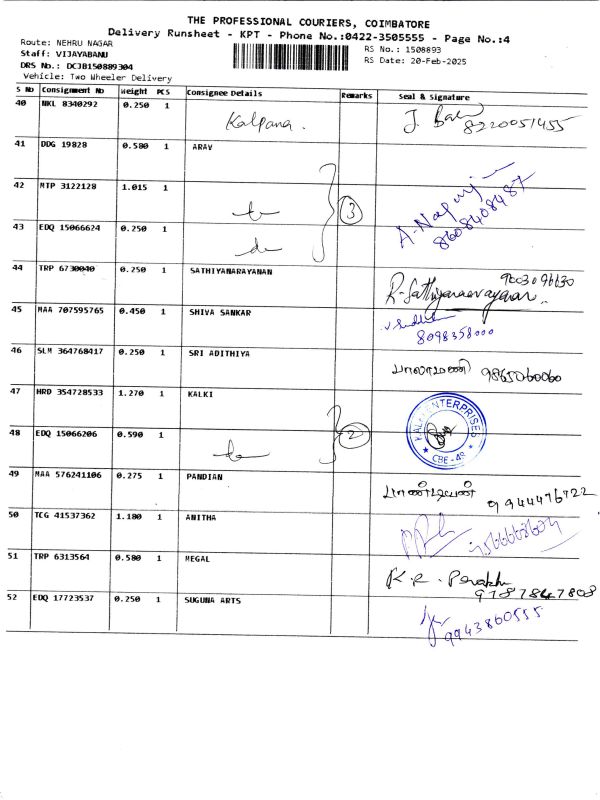 THE PROFESSIONAL COURIERS, COIMBATORE
Delivery Runsheet - KPT - Phone No.:0422-3505555 - Page No.:4
Route: NEHRU NAGAR
Staff: VIJAYABANU
DRS No.: DCJB150889304
Vehicle: Two Wheeler Delivery
RS No.: 1508893
RS Date: 20-Feb-2025
S No Consignment No Weight PCS Consignee Details Remarks Seal & Signature
40 NKL 8340292 0.250 1 Kalpana. 8220051455
41 DDG 19828 0.580 1 ARAV
42 MTP 3122128 1.015 1 3 8608408487
43 EDQ 15066624 0.250 1
44 TRP 6730040 0.250 1 SATHIYANARAYANAN 9003096630
45 MAA 707595765 0.450 1 SHIVA SANKAR 8098358000
46 SLM 364768417 0.250 1 SRI ADITHIYA பாலாமணி 9865060060
47 HRD 354728533 1.270 1 KALKI
48 EDQ 15066206 0.590 1 2 ENTERPRISES CBE-48
49 MAA 576241106 0.275 1 PANDIAN 9944476722
50 TCG 41537362 1.180 1 ANITHA
51 TRP 6313564 0.580 1 MEGAL K.R. 9787847808
52 EDQ 17723537 0.250 1 SUGUNA ARTS 9943860555